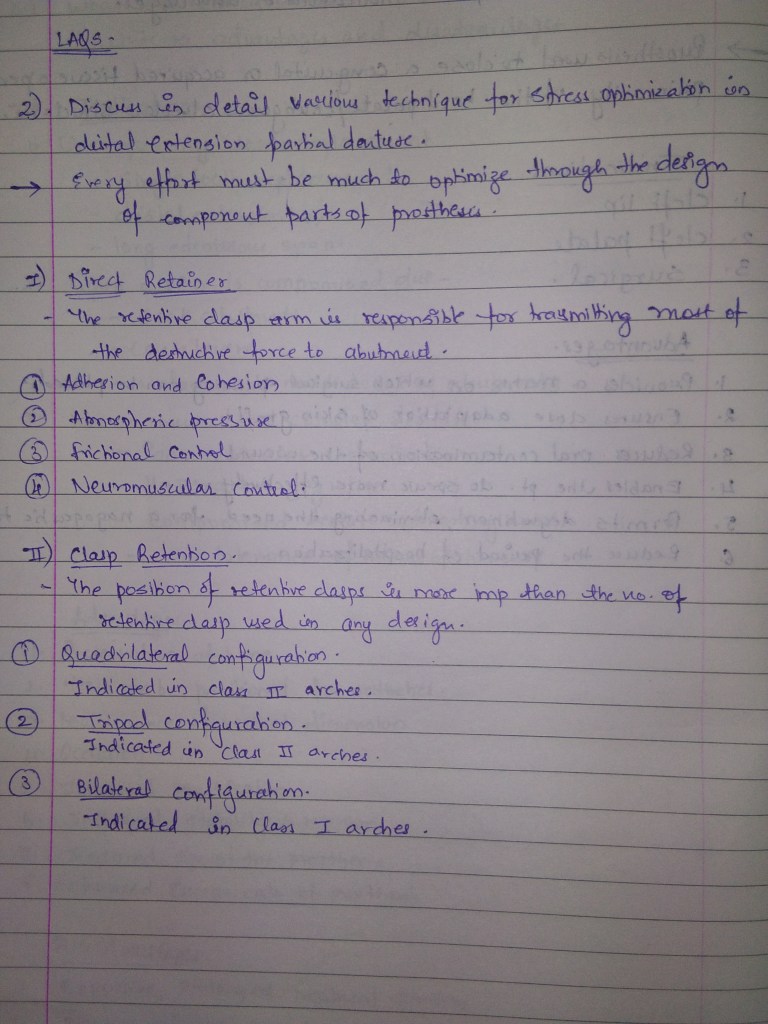 LAQS -
2). Discuss in detail various technique for stress optimization in
distal extension partial denture.
→ Every effort must be much to optimize through the design
of component parts of prosthesis.
I) Direct Retainer
- The retentive clasp arm is responsible for transmitting most of
the destructive force to abutment.
① Adhesion and Cohesion
② Atmospheric pressure
③ frictional Control
④ Neuromuscular Control.
II) Clasp Retention.
- The position of retentive clasps is more imp than the no. of
retentive clasp used in any design.
① Quadrilateral configuration.
Indicated in class II arches.
② Tripod configuration.
Indicated in Class II arches.
③ Bilateral configuration.
Indicated in Class I arches.